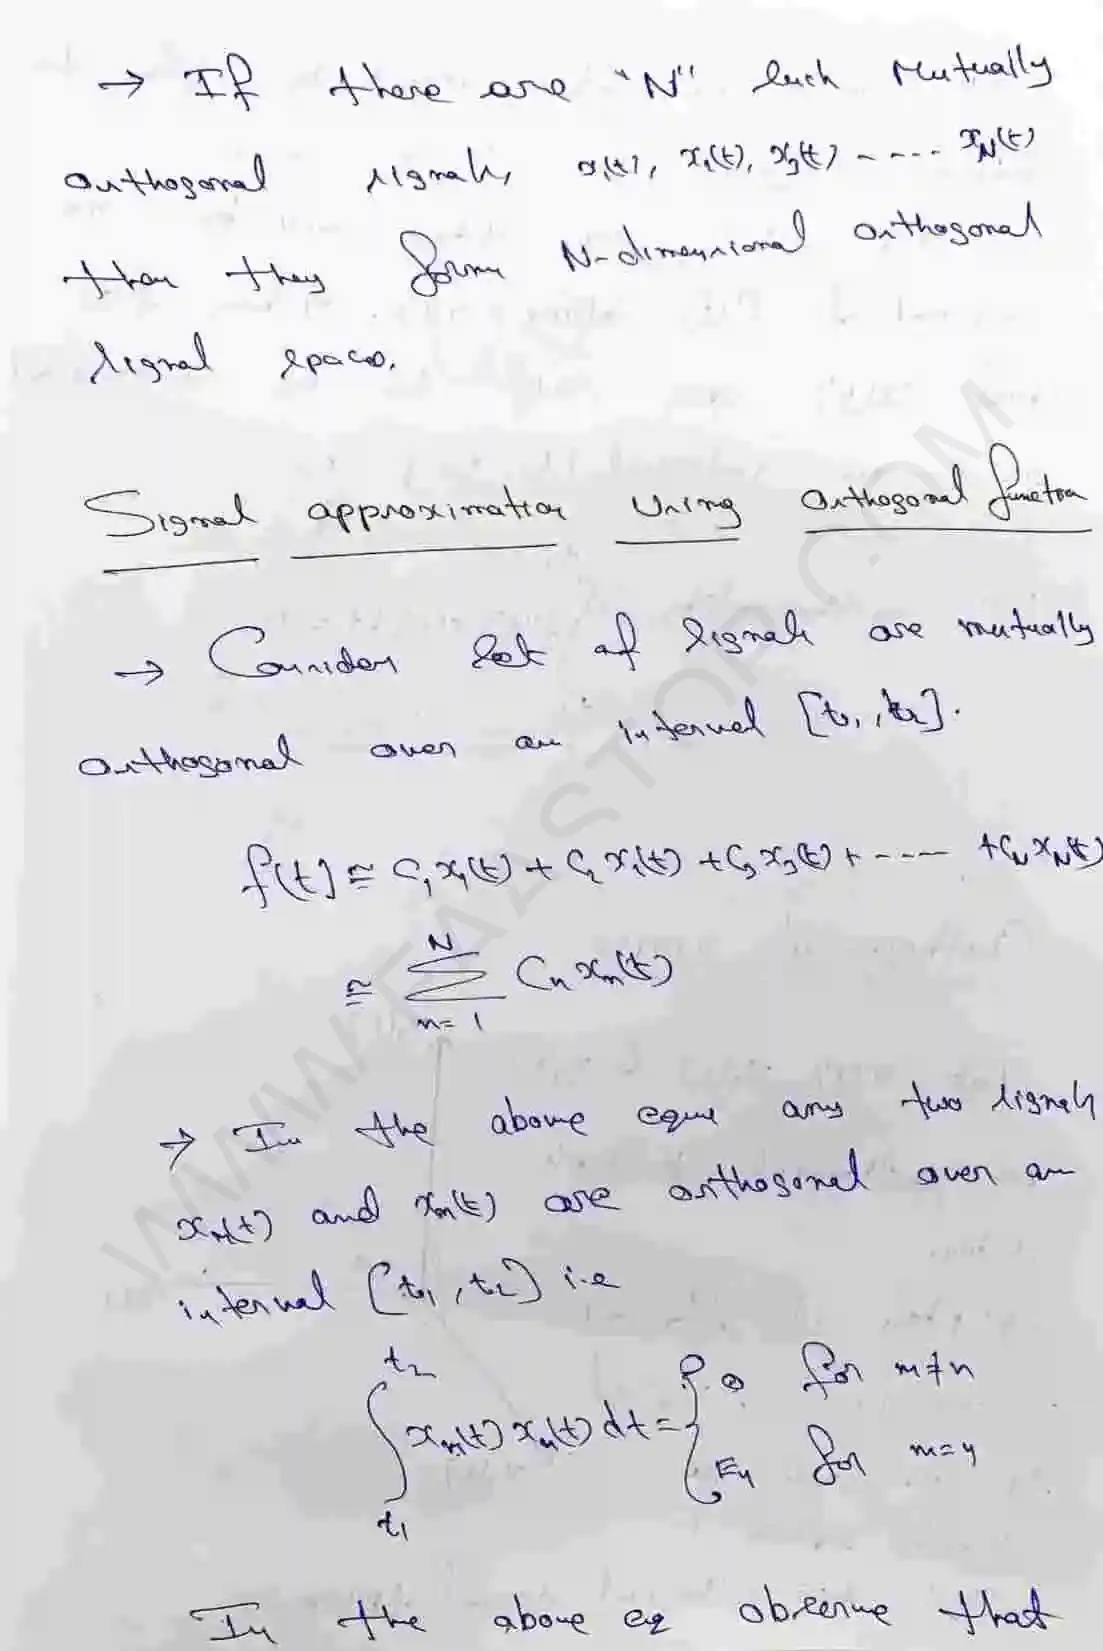 → If there are "N" such Mutually
orthogonal signals, x₁(t), x₂(t), x₃(t) ----- x_N(t)
then they forms N-dimensional orthogonal
signal space.
Signal approximation Using orthogonal function
→ Consider set of signals are mutually
orthogonal over an interval [t₁, t₂].
f(t) ≅ C₁x₁(t) + C₂x₂(t) + C₃x₃(t) + ---- + C_N x_N(t)
≅ Σ_{n=1}^{N} C_n x_n(t)
→ In the above equn any two signals
x_m(t) and x_n(t) are orthogonal over an
interval [t₁, t₂] i.e
∫_{t₁}^{t₂} x_m(t) x_n(t) dt = { 0 for m≠n
E_n for m=n
In the above eq observe that
WWW.FAZSTOP.COM